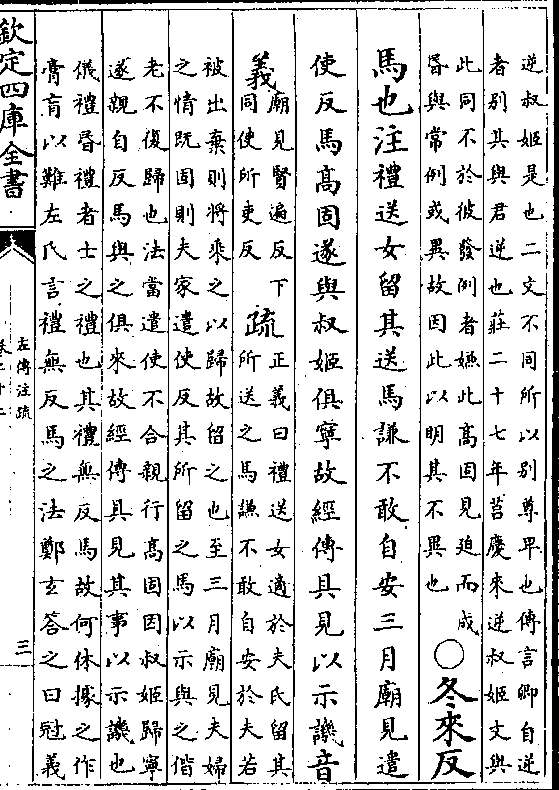 逆叔姬是也二文不同所以别尊卑也傳言卿自逆
者别其與君逆也莊二十七年莒慶來逆叔姬文與
此同不於彼發例者嫌此高固見迫而成
昬與常例或異故因此以明其不異也
○冬來反
馬也注禮送女留其送馬謙不敢自安三月廟見遣
使反馬髙固遂與叔姬俱寧故經傳具見以示譏音
義
廟見賢遍反下
同使所吏反
疏
正義曰禮送女適於夫氏留其
所送之馬謙不敢自安於夫若
被出棄則將乘之以歸故留之也至三月廟見夫婦
之情既固則夫家遣使反其所留之馬以示與之偕
老不復歸也法當遣使不合親行髙固因叔姬歸寧
遂親自反馬與之俱來故經傳具見其事以示譏也
儀禮昬禮者士之禮也其禮無反馬故何休據之作
膏肓以難左氏言禮無反馬之法鄭玄答之曰冠義
欽定四庫全書
左傳注疏
三